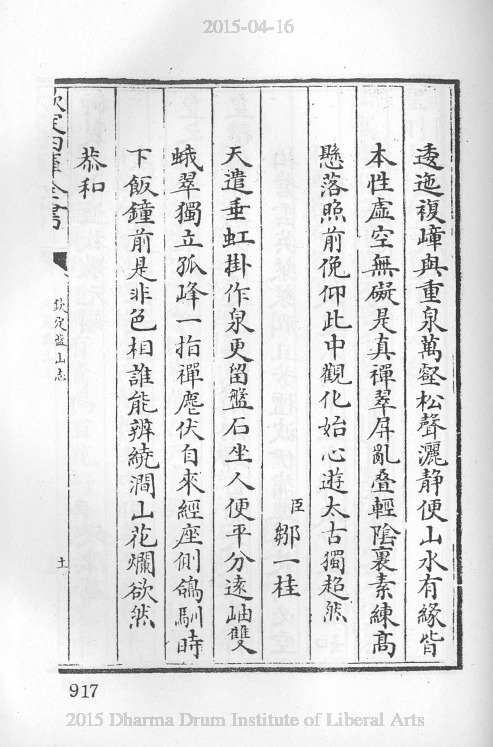 2015-04-16
逶迤複嶂與重泉萬壑松聲灑静便山水有緣皆
本性虛空無礙是真禪翠屏亂叠輕陰裏素練髙
懸落照前俛仰此中觀化始心遊太古獨超然
臣鄒一桂
天遣垂虹掛作泉更留盤石坐人便平分遠岫雙
蛾翠獨立孤峰一指禪麀伏自來經座側鴿馴時
下飯鐘前是非色相誰能辨繞澗山花爛欲然
恭和
欽定四庫全書
欽定盤山志
土
917
2015 Dharma Drum Institute of Liberal Arts